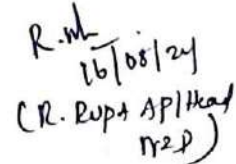 R. 
16/08/24
(R. RUPA AP/Head
)